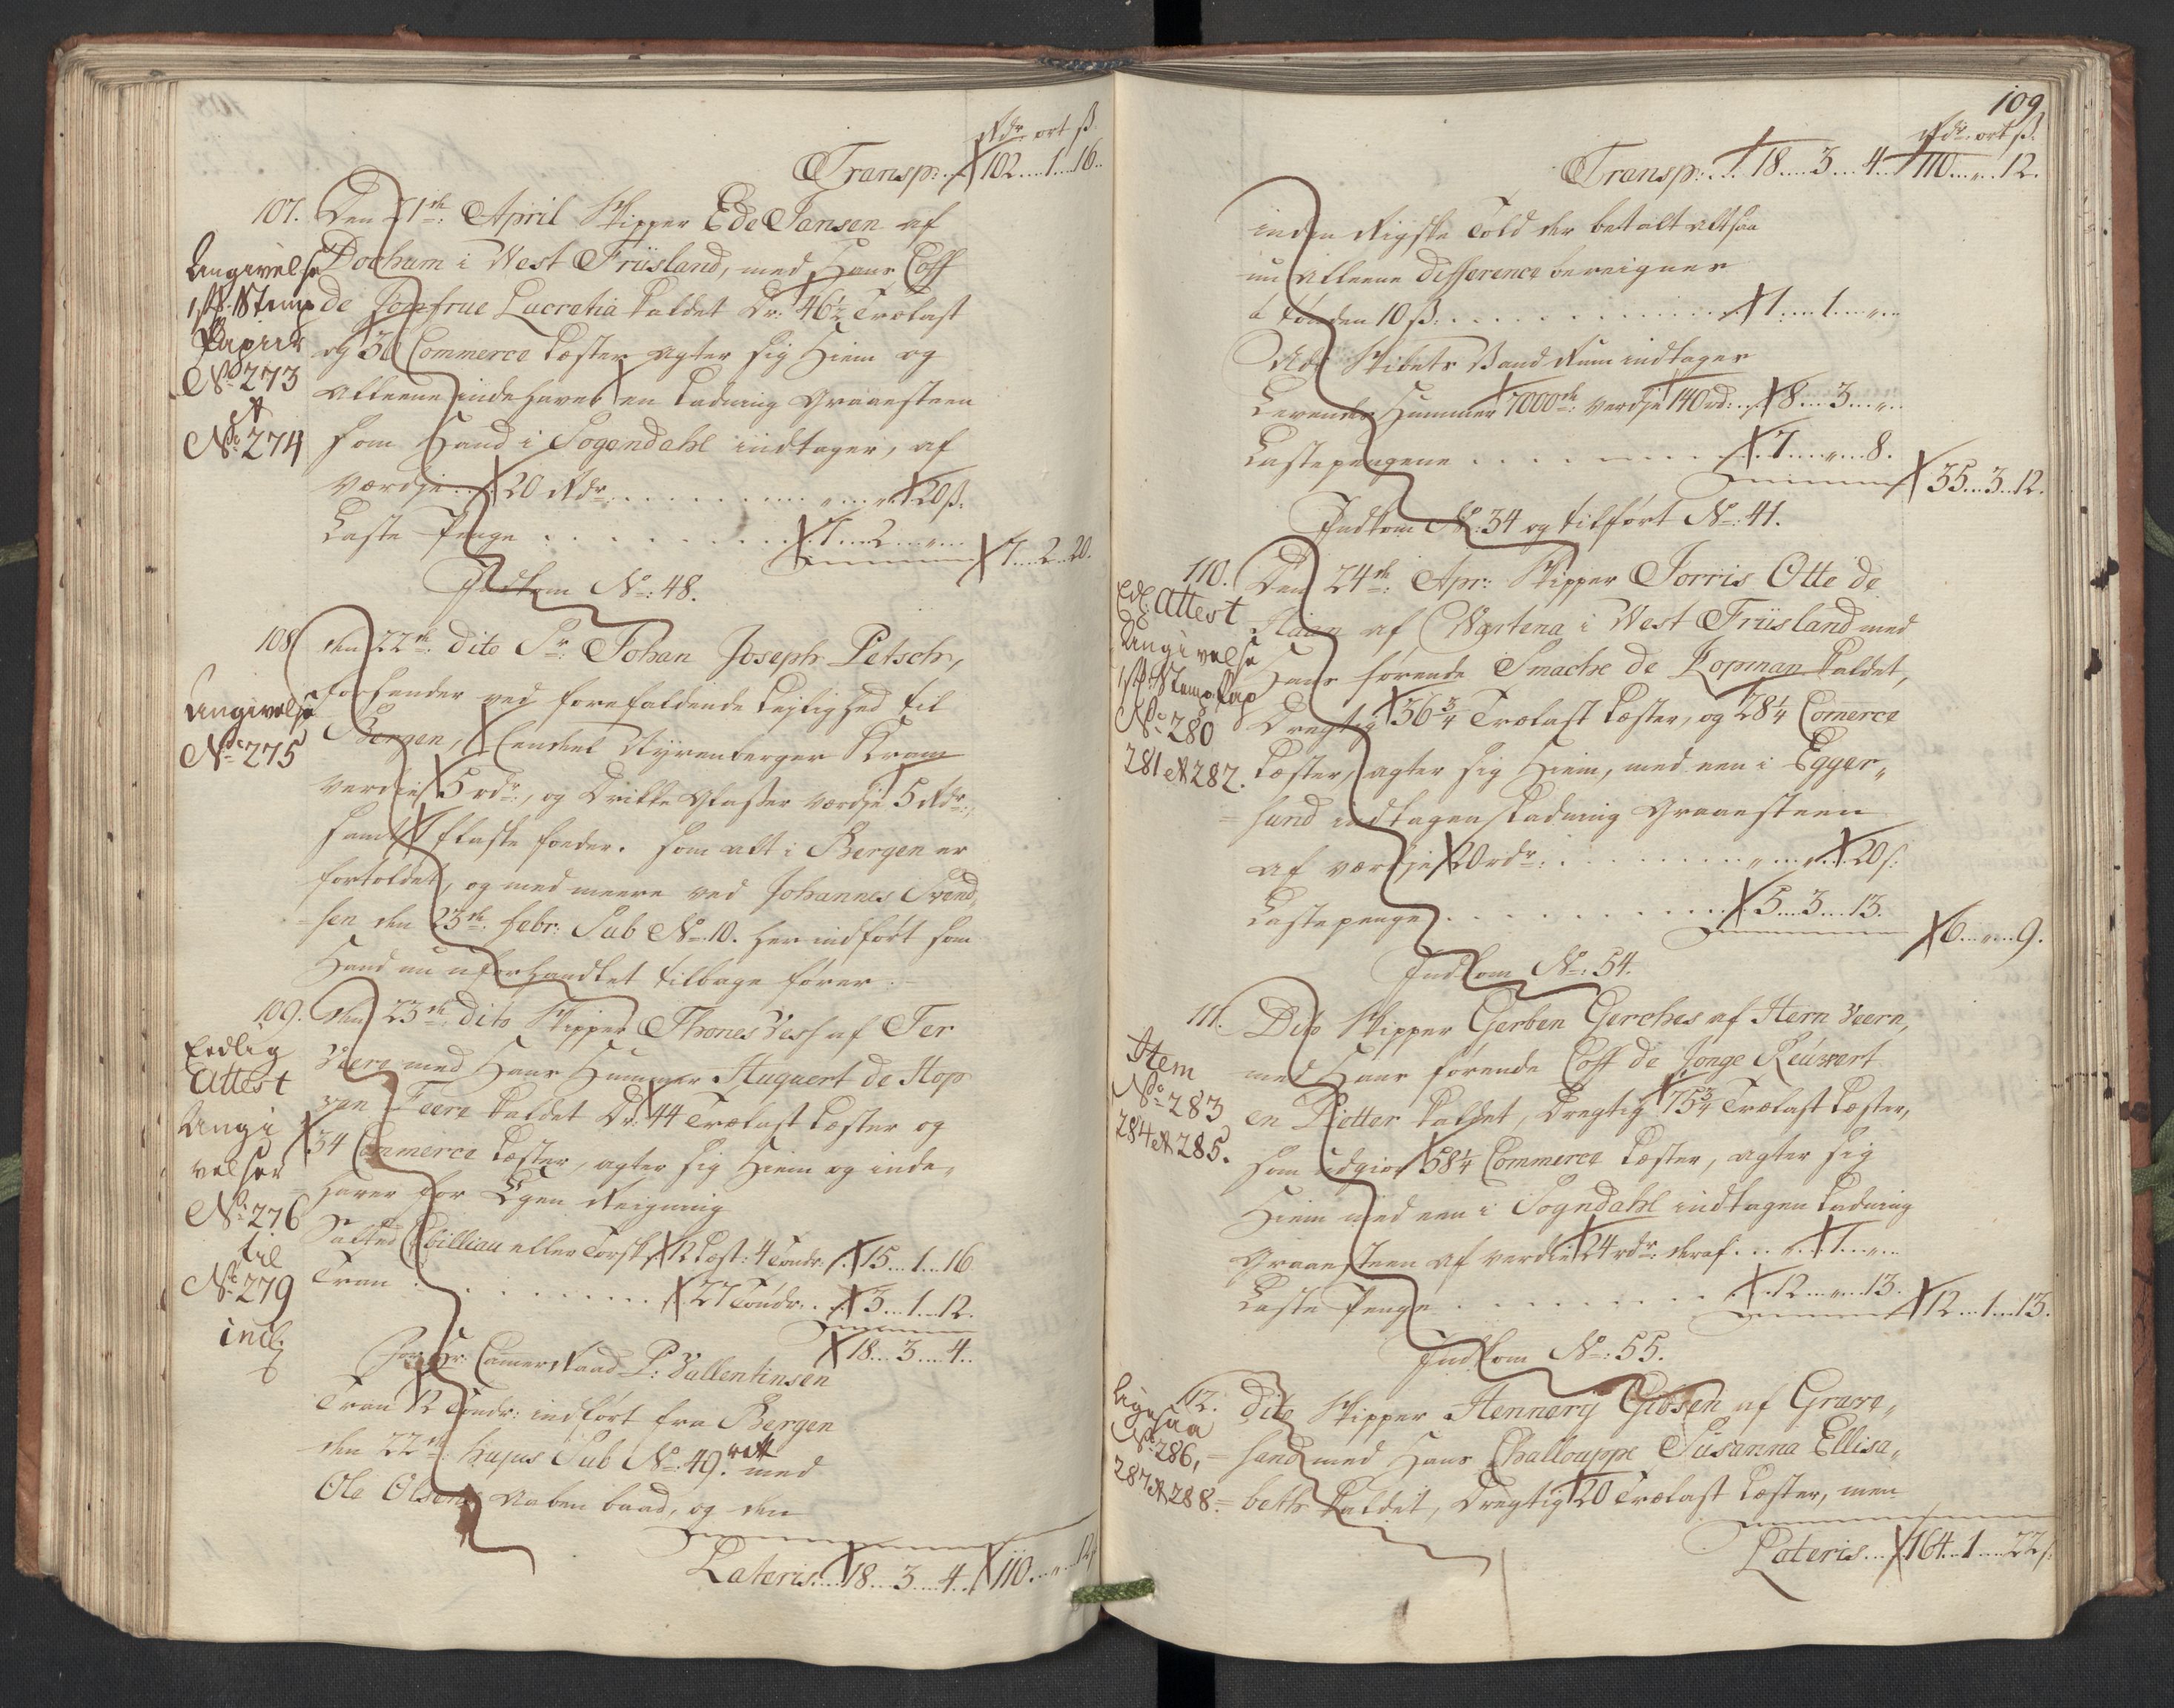 Rdr. ort ß.
Transp: . . 102....1....16..
107. Den 21de: April Skipper Ede Jansen af
Dochum i West Friisland, med Hans Coff
de Jomfrue Lucretia kaldet Dr: 46½ Trælast
og 36 Commerce Læster agter sig Hiem og
alleene indehaver en Ladning Graaesteen
som Hand i Sogendahl indtager, af
Værdje . . 20 Rdr. . . . . . . . . " .... " 20 ß.
Laste Penge . . . . . . . . 7....2...."... 7....2...20.
Indkom No: 48.
Angivelse
1 ß. Stemp
Papiir
No: 273
&
No: 274
108. den 22de: dito Sr: Johan Joseph Petsch,
forsender ved forefaldende Lejlighed til
Bergen, Eendeel Nyrenberger Kram
verdie 5 rdr:, og Drikke Glasser værdje 5 Rdr:,
samt 1 flaske foeder. som alt i Bergen er
fortoldet, og med meere ved Johannes Svend,
= sen den 23de: Febr: Sub No: 10. her indført som
Hand nu uforhandlet tilbage fører.
Angivelse
No: 275
109. den 23de: dito Skipper Thones Vess af Ter
Veere med Hans Hummer Huquert de Hop
van Feere kaldet Dr: 44 Trælast Læster og
34 Commerce Læster, agter sig Hiem og inde,
= haver for Egen Reigning
Salted Cabilliau eller Torsk, 12 Læst: 4 Tønder: . 15...1...16.
Tran . . . . . . . . . 27 Tønder. . . 3....1....12.
18....3....4..
Eedlig
Attest
Angi
velser
No: 276
til
No: 279
incl:
for Hr: Cammerraad P: Vallentinsen
Tran 12 Tønder: indført fra Bergen
den 22de: hujus Sub No: 49. rett med
Ole Olsens Aaben baad, og den
Lateris.... 18....3....4.. 110...."....12
109
Rdr. ort ß.
Transp: . . 18....3....4.. 110...."....12.
inden Rigske Told der betalt altsaa
nu alleene difference bereignes
à tønden 10 ß: . . . . . . . . . . . . 1....1...."..
Udi Skibets Vand Rum indtager
Levende Hummer 7000de: verdje 140 rd: . 8....3...."..
Lastepengene . . . . . . . . 7...."....8. 35...3...12.
Indkom No: 34 og tilført No: 41.
110. Den 24de: Apr: Skipper Jorris Otte de
Haan af Wartena i West Friisland med
Hans førende Smache de Kopman kaldet,
Drægtig 36¾ Trælast Læster, og 28¼ Comerce
Læster, agter sig Hiem, med een i Egger,,
= sund indtagen Ladning Graaesteen
af værdje 20 rdr: . . . . . . . . " .... " 20 ß.
Lastepenge . . . . . . . . . 5....3....13. 6...."....9.
Indkom No: 54.
Edl. Attest
Angivelse
1 ß. Stemp Pap
No: 280
281 & 282.
111. Dito Skipper Gerben Gerches af Hern Veern,
med Hans førende Coff de Jonge Reuwert
en Pietter kaldet, Drægtig 75¾ Trælast Læster,
som udgiør 58¼ Commerce Læster, agter sig
Hiem med een i Sogndahl indtagen Ladning
Graaesteen af verdie 24 rdr: deraf . . . . 1...."..
Laste Penge . . . . . . . . 12...."....13. 12....1....13.
Indkom No: 55.
Item
No: 283
284 & 285.
112. Dito Skipper Hennerÿ Gibsen af Grave,,
= sand med Hans Challouppe Susanna Ellisa,,
= beth kaldet, Drægtig 20 Trælast Læster, men
Ligesaa
No: 286,
287 & 288.
Lateris . . . 164...1....22 ß.